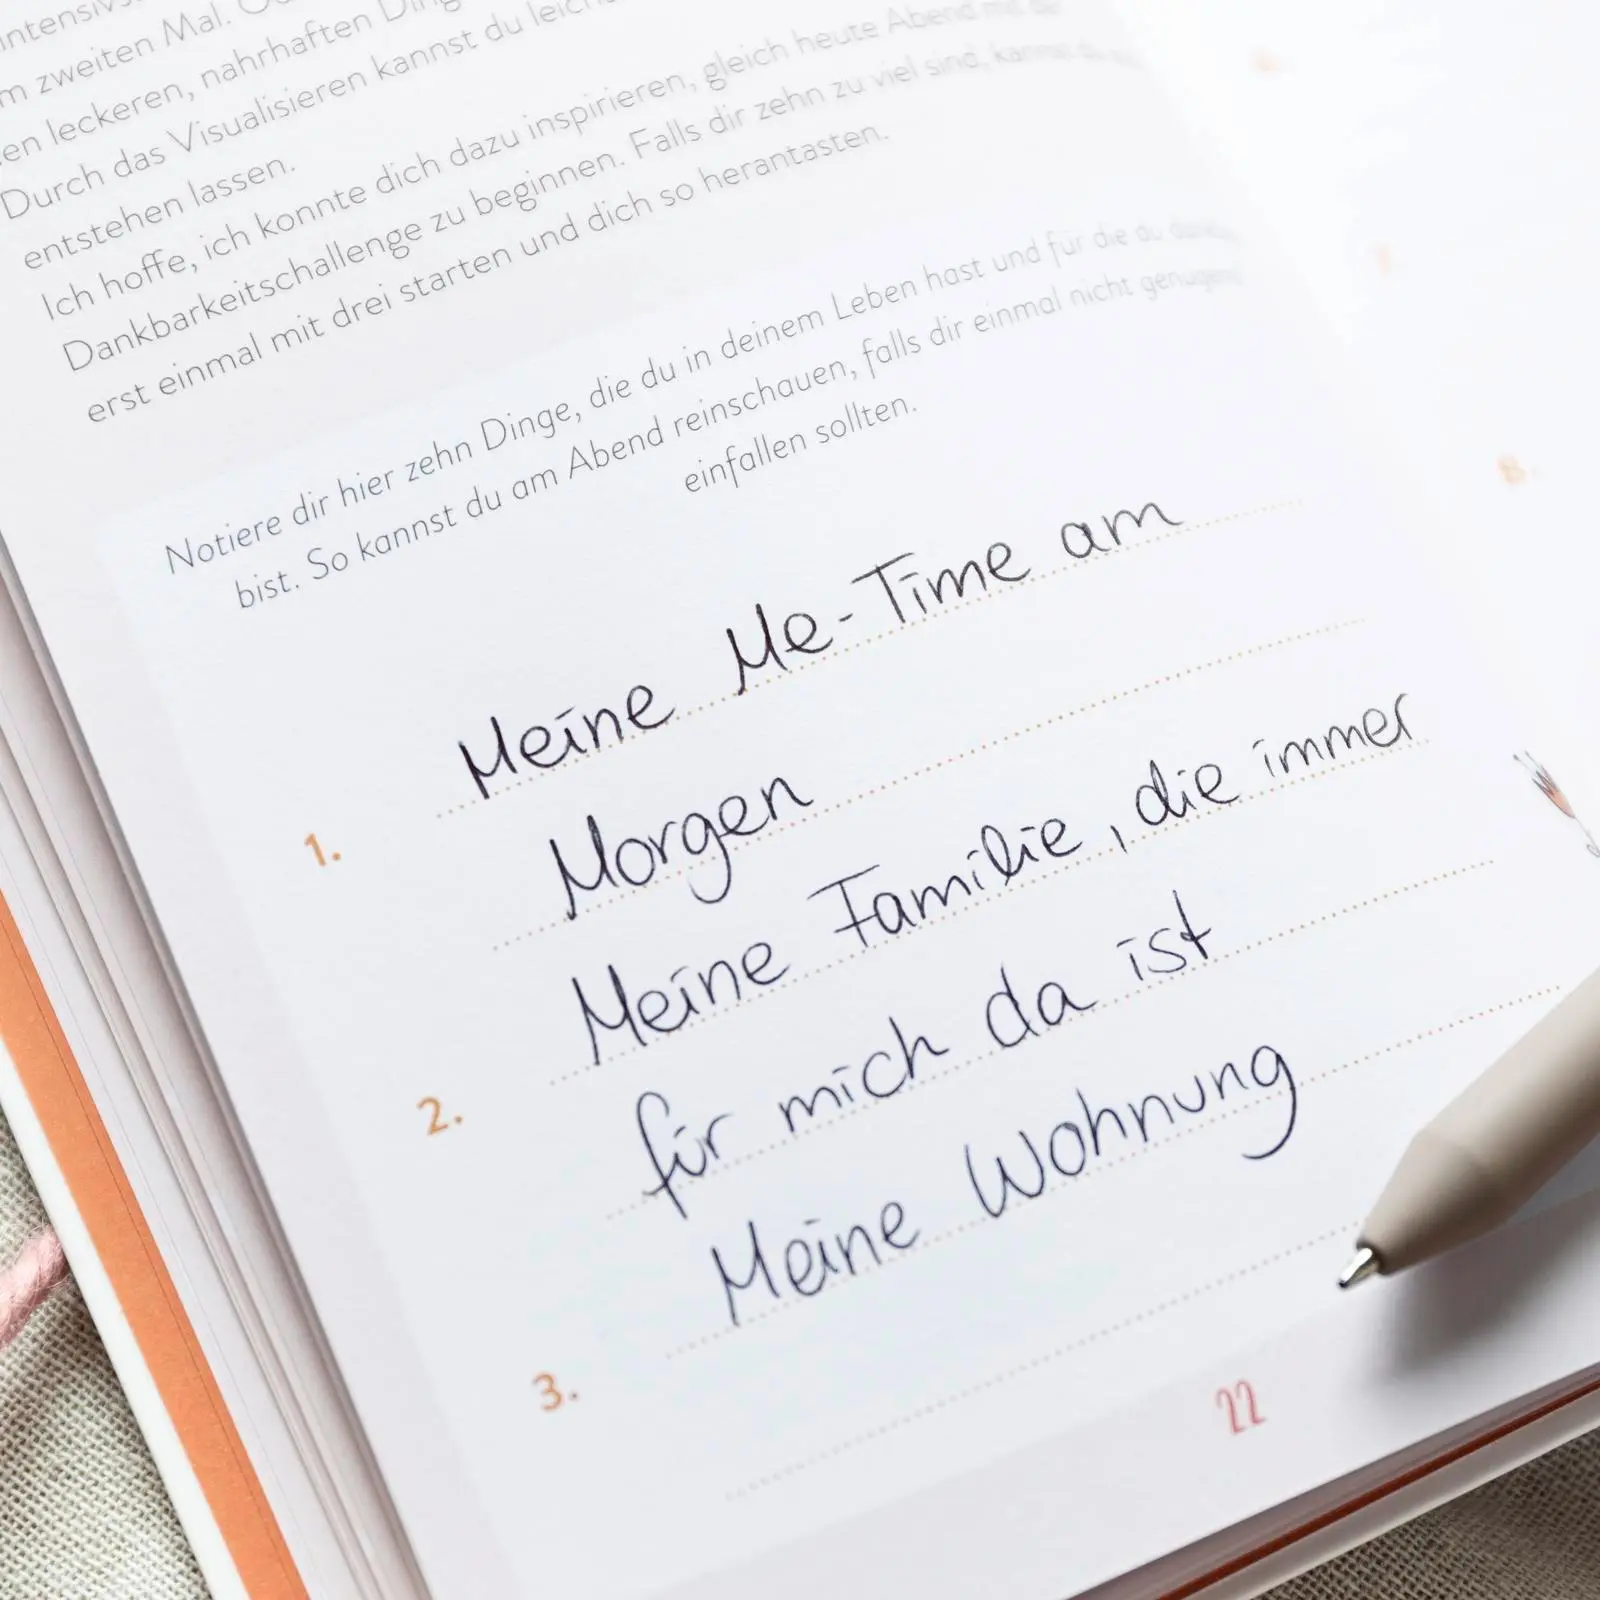 zweiten Mal.
leckeren, nahrhaften
Durch das Visualisieren kannst du
entstehen lassen.
Ich hoffe, ich konnte dich dazu inspirieren, gleich heute Abend mit
Dankbarkeitschallenge zu beginnen. Falls dir zehn zu viel sind, kannst du
erst einmal mit drei starten und dich so herantasten.
Notiere dir hier zehn Dinge, die du in deinem Leben hast und für die du dankbar
bist. So kannst du am Abend reinschauen, falls dir einmal nicht genügend
einfallen sollten.
1. Meine Me-Time am
Morgen
2. Meine Familie, die immer
für mich da ist
3. Meine Wohnung
22
8.